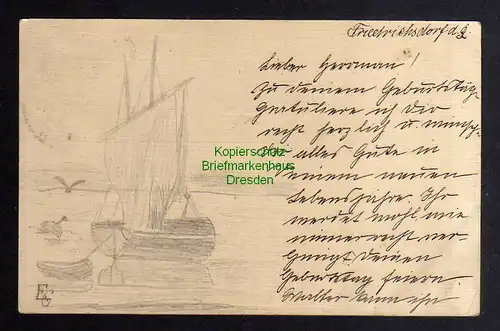 Friedrichsdorf d.
Lieber Herrman!
Zu deinem Geburtstag
gratuliere ich dir
recht herzlich u. wünsch
dir alles Gute in
Deinem neuen
Lebensjahre. Ihr
werdet wohl wie
immer recht ver-
gnügt Deinen
Geburtstag feiern.
Walter kann ihn
Kopierschutz
Briefmarkenhaus
Dresden